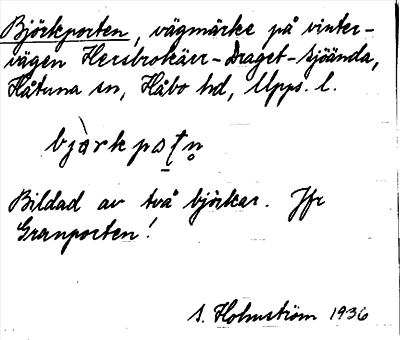 Björkporten, vägmärke på vinter-
vägen Hersbrokärr-Draget-Sjöända,
Håtuna sn, Håbo hd, Upps. l.
Bildad av två björkar. Jfr
Granporten!
S. Holmström 1936